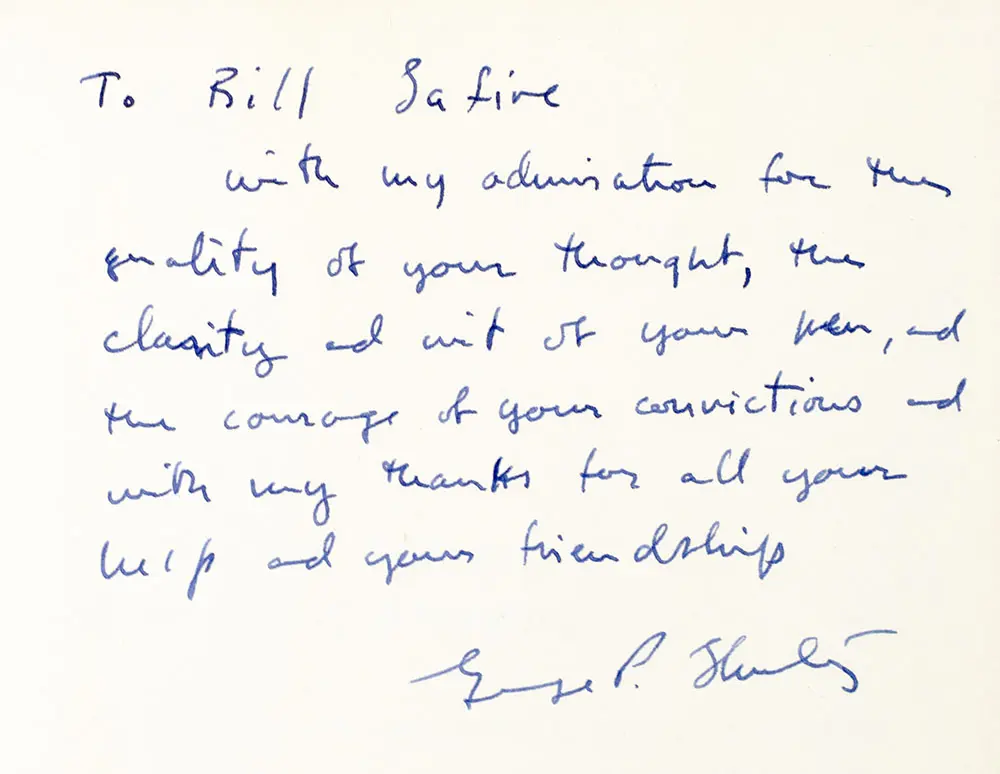 To Bill Safire
with my admiration for the
quality of your thought, the
clarity and wit of your pen, and
the courage of your convictions and
with my thanks for all your
help and your friendship
George P. Shultz